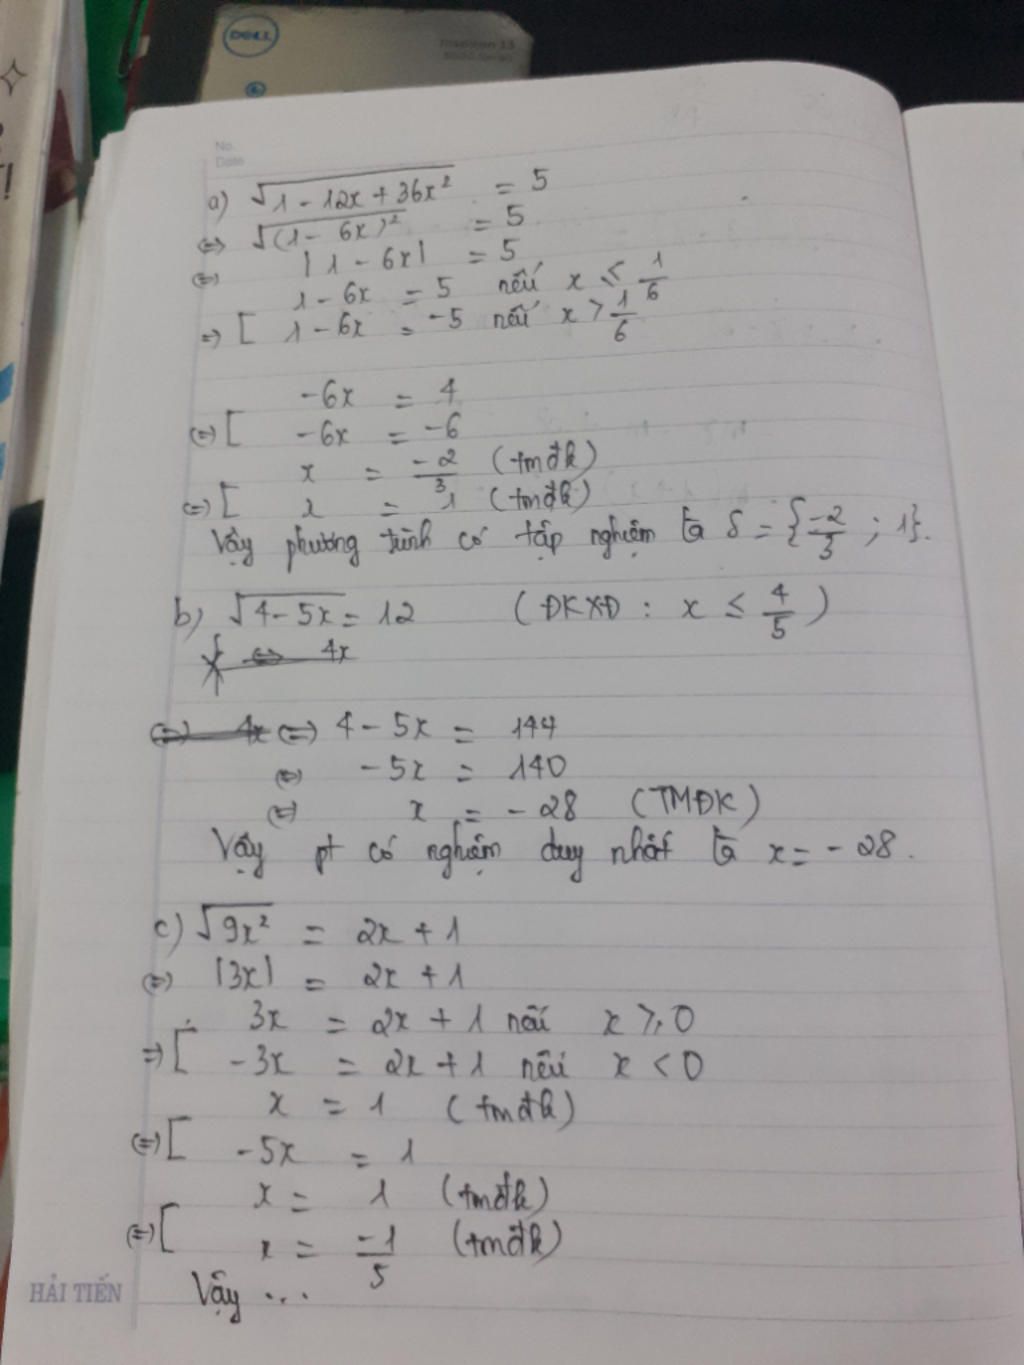 DELL
Inspiron 15
No.
Date
a) √(1 - 12x + 36x²) = 5
⇔ √((1 - 6x)²) = 5
⇔ |1 - 6x| = 5
1 - 6x = 5 nếu x ≤ 1/6
⇒ [ 1 - 6x = -5 nếu x > 1/6
-6x = 4
⇔ [ -6x = -6
x = -2/3 (tmđk)
⇔ [ x = 1 (tmđk)
Vậy phương trình có tập nghiệm là S = {-2/3 ; 1}.
b) √(4 - 5x) = 12 (ĐKXĐ : x ≤ 4/5)
⇔ 4x
⇔ 4x ⇔ 4 - 5x = 144
⇔ -5x = 140
⇔ x = -28 (TMĐK)
Vậy pt có nghiệm duy nhất là x = -28.
c) √(9x²) = 2x + 1
⇔ |3x| = 2x + 1
3x = 2x + 1 nếu x ≥ 0
⇒ [ -3x = 2x + 1 nếu x < 0
x = 1 (tmđk)
⇔ [ -5x = 1
x = 1 (tmđk)
⇔ [ x = -1/5 (tmđk)
Vậy ...
HẢI TIẾN